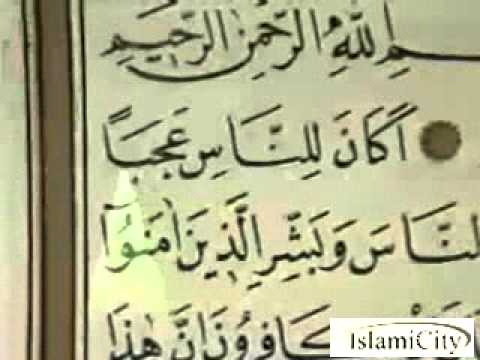 مِ اللَّهِ الرَّحْمٰنِ الرَّحِيمِ
أَكَانَ لِلنَّاسِ عَجَبًا
النَّاسَ وَبَشِّرِ الَّذِينَ اٰمَنُوٓا
كَافِرُونَ اِنَّ هٰذَا
IslamiCity